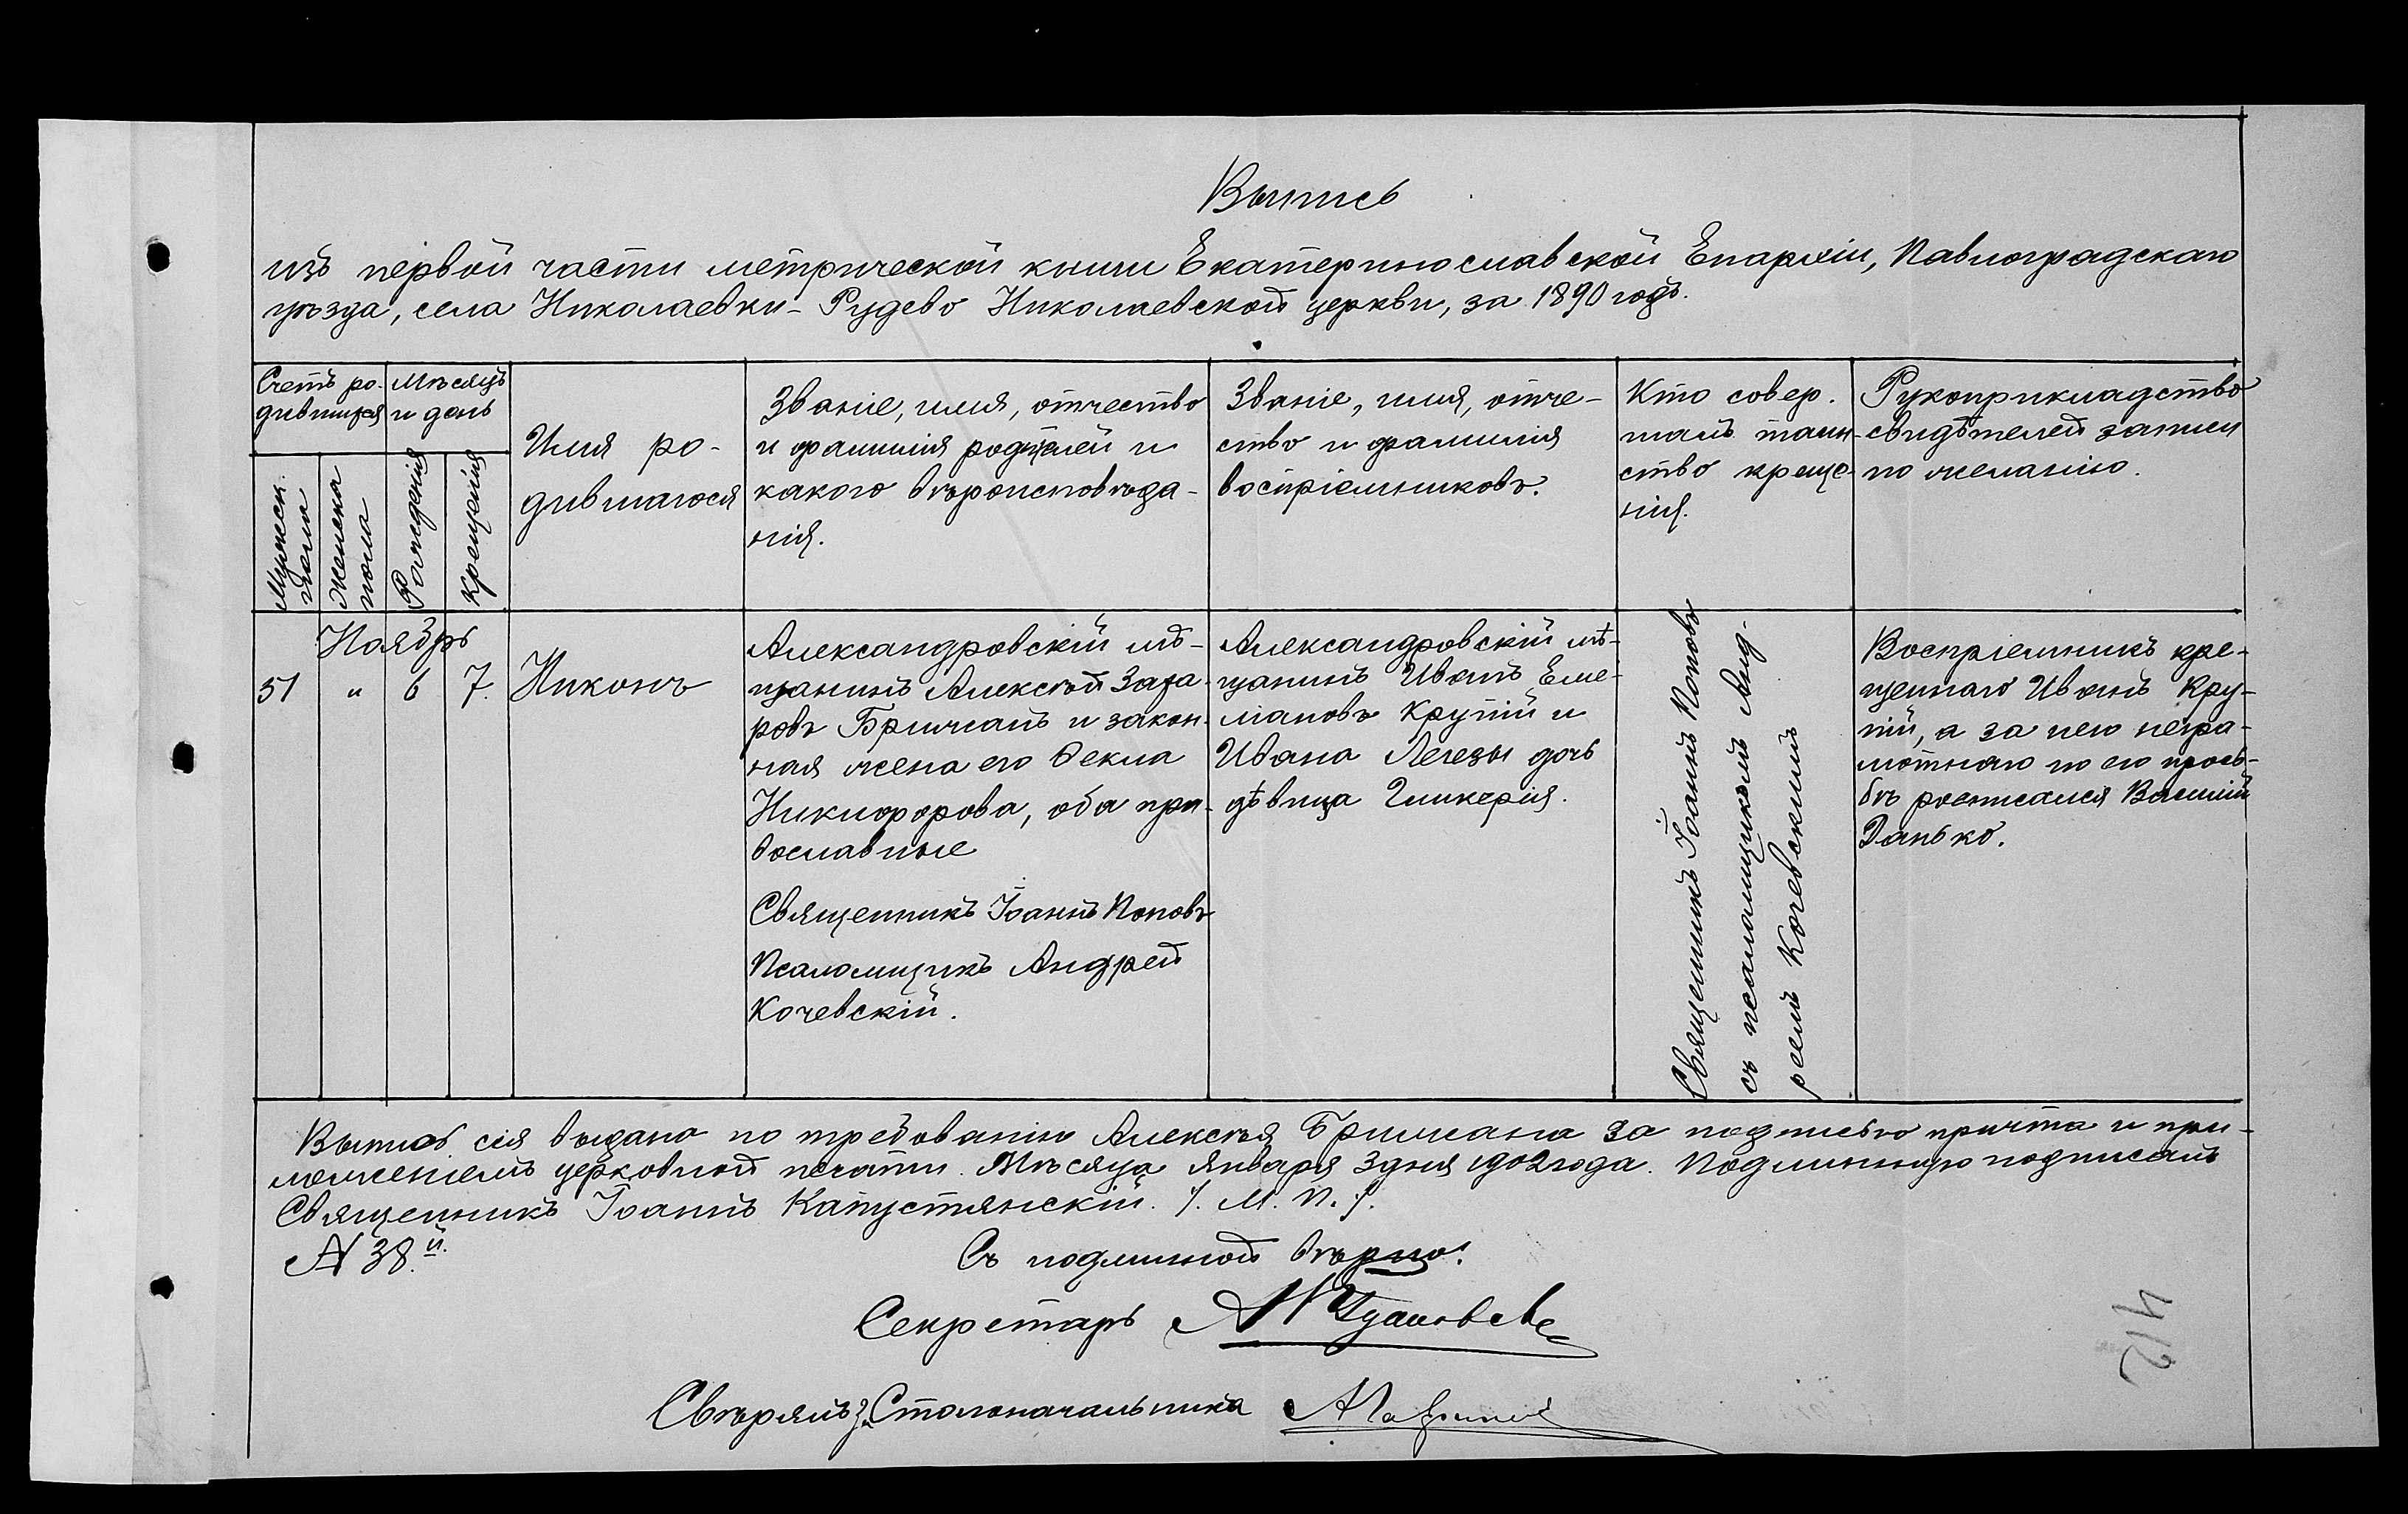 Выпись
изъ первой части метрической книги Екатеринославской Епархіи, Павлоградскаго
уѣзда, села Николаевки-Рудево Николаевской церкви, за 1890 годъ.
Счетъ ро-
дившихся
Мѣсяцъ
и день
Мужеск.
пола
Женска
пола
Рожденія
Крещенія
Имя ро-
дившагося
Званіе, имя, отчество
и фамилія родителей и
какого вѣроисповѣда-
нія.
Званіе, имя, отче-
ство и фамилія
воспріемниковъ.
Кто совер.
шалъ таин-
ство креще-
нія.
Рукоприкладство
свидѣтелей записи
по желанію.
Ноябрь
51 " 6 7.
Никонъ
Александровскій мѣ-
щанинъ Алексѣй Заха-
ровъ Бричманъ и закон-
ная жена его Ѳекла
Никифорова, оба пра-
вославные
Священникъ Іоаннъ Поповъ
Псаломщикъ Андрей
Кочевскій.
Александровскій мѣ-
щанинъ Иванъ Еме-
ліановъ Крупій и
Ивана Легезы дочь
дѣвица Гликерія.
Священникъ Іоаннъ Поповъ
съ псаломщикомъ Анд-
реемъ Кочевскимъ
Воспріемникъ кре-
щеннаго Иванъ Кру-
пій, а за него негра-
мотнаго по его прось-
бѣ росписался Василій
Данько.
Выпись сія выдана по требованію Алексѣя Бричмана за подписью причта и при-
ложеніемъ церковной печати. Мѣсяца Января 3 дня 1902 года. Подлинную подписалъ
Священникъ Іоаннъ Капустянскій. /. М. П. /.
№ 38.й.
Съ подлинной вѣрно:
Секретарь
Свѣрялъ: Столоначальника
412